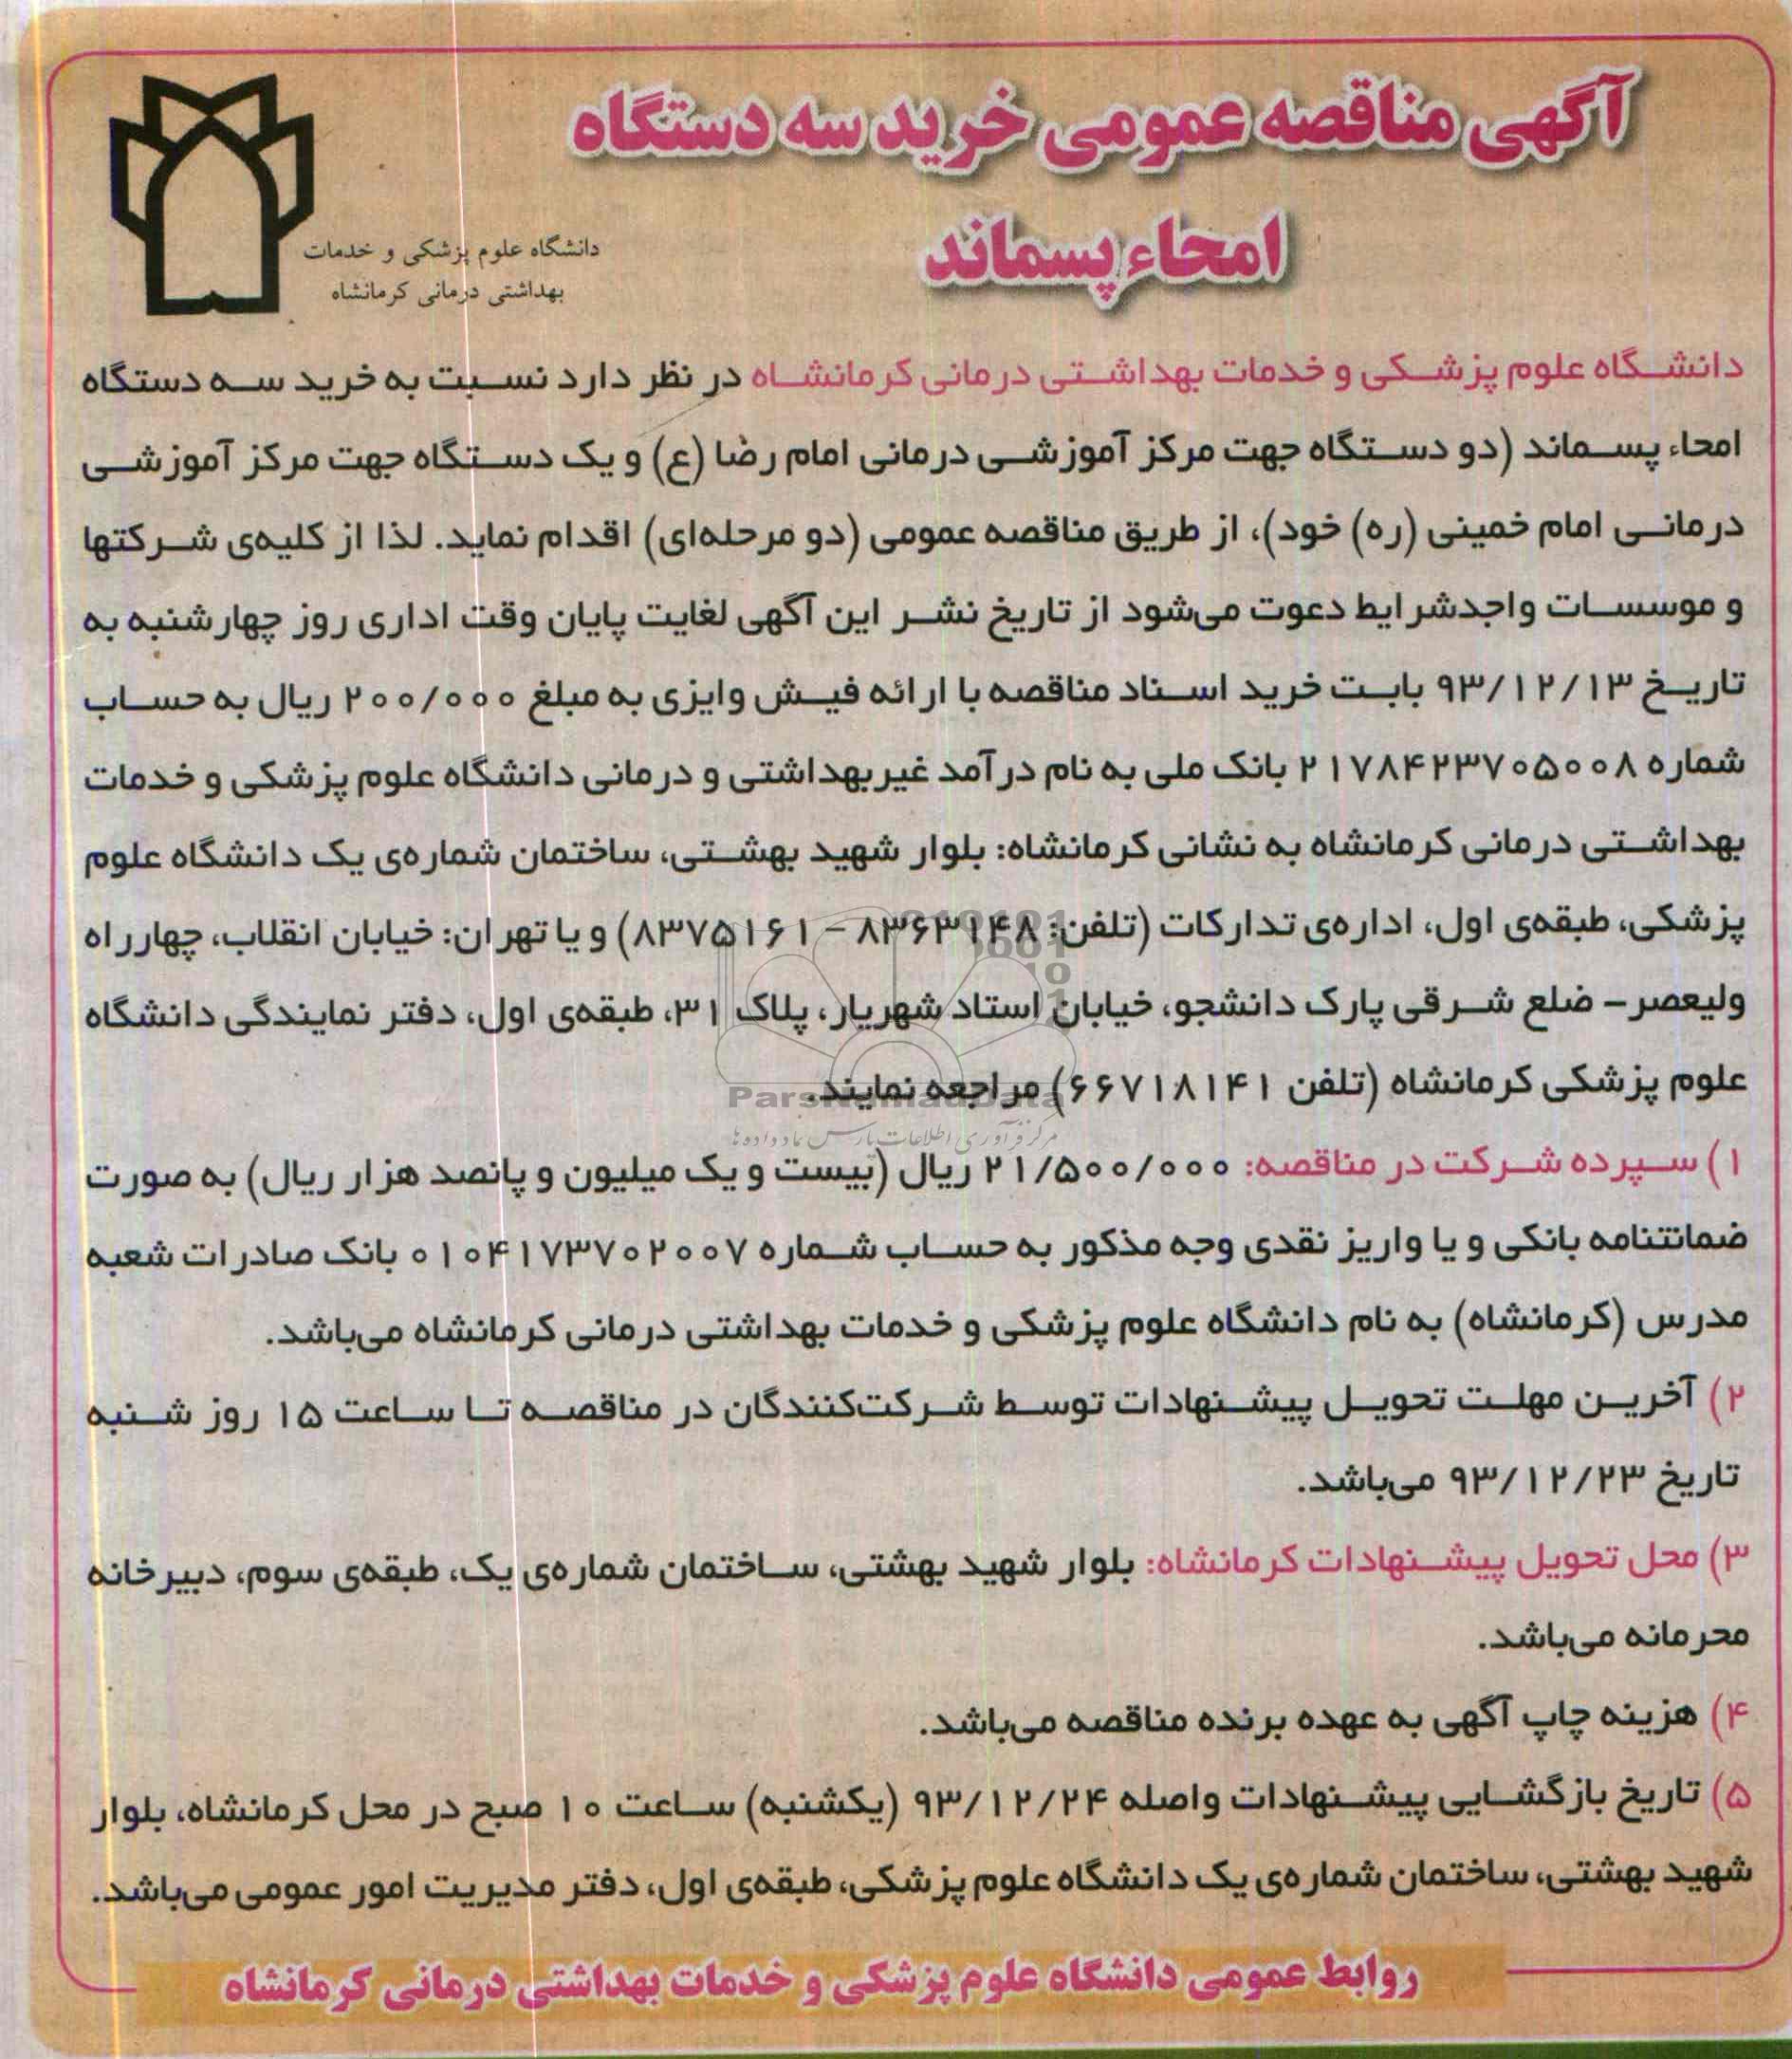 آگهی مناقصه عمومی خرید سه دستگاه
امحاء پسماند
دانشگاه علوم پزشکی و خدمات
بهداشتی درمانی کرمانشاه
دانشگاه علوم پزشکی و خدمات بهداشتی درمانی کرمانشاه در نظر دارد نسبت به خرید سه دستگاه
امحاء پسماند (دو دستگاه جهت مرکز آموزشی درمانی امام رضا (ع) و یک دستگاه جهت مرکز آموزشی
درمانی امام خمینی (ره) خود)، از طریق مناقصه عمومی (دو مرحله‌ای) اقدام نماید. لذا از کلیه‌ی شرکتها
و موسسات واجدشرایط دعوت می‌شود از تاریخ نشر این آگهی لغایت پایان وقت اداری روز چهارشنبه به
تاریخ ۹۳/۱۲/۱۳ بابت خرید اسناد مناقصه با ارائه فیش وایزی به مبلغ ۲۰۰/۰۰۰ ریال به حساب
شماره ۲۱۷۸۴۲۳۷۰۵۰۰۸ بانک ملی به نام درآمد غیربهداشتی و درمانی دانشگاه علوم پزشکی و خدمات
بهداشتی درمانی کرمانشاه به نشانی کرمانشاه: بلوار شهید بهشتی، ساختمان شماره‌ی یک دانشگاه علوم
پزشکی، طبقه‌ی اول، اداره‌ی تدارکات (تلفن: ۸۳۶۳۱۴۸ – ۸۳۷۵۱۶۱) و یا تهران: خیابان انقلاب، چهارراه
ولیعصر – ضلع شرقی پارک دانشجو، خیابان استاد شهریار، پلاک ۳۱، طبقه‌ی اول، دفتر نمایندگی دانشگاه
علوم پزشکی کرمانشاه (تلفن ۶۶۷۱۸۱۴۱) مراجعه نمایند.
ParsNamadData
مرکز فرآوری اطلاعات پارس نماد داده ها
۱) سپرده شرکت در مناقصه: ۲۱/۵۰۰/۰۰۰ ریال (بیست و یک میلیون و پانصد هزار ریال) به صورت
ضمانتنامه بانکی و یا واریز نقدی وجه مذکور به حساب شماره ۰۱۰۴۱۷۳۷۰۲۰۰۷ بانک صادرات شعبه
مدرس (کرمانشاه) به نام دانشگاه علوم پزشکی و خدمات بهداشتی درمانی کرمانشاه می‌باشد.
۲) آخرین مهلت تحویل پیشنهادات توسط شرکت‌کنندگان در مناقصه تا ساعت ۱۵ روز شنبه
تاریخ ۹۳/۱۲/۲۳ می‌باشد.
۳) محل تحویل پیشنهادات کرمانشاه: بلوار شهید بهشتی، ساختمان شماره‌ی یک، طبقه‌ی سوم، دبیرخانه
محرمانه می‌باشد.
۴) هزینه چاپ آگهی به عهده برنده مناقصه می‌باشد.
۵) تاریخ بازگشایی پیشنهادات واصله ۹۳/۱۲/۲۴ (یکشنبه) ساعت ۱۰ صبح در محل کرمانشاه، بلوار
شهید بهشتی، ساختمان شماره‌ی یک دانشگاه علوم پزشکی، طبقه‌ی اول، دفتر مدیریت امور عمومی می‌باشد.
روابط عمومی دانشگاه علوم پزشکی و خدمات بهداشتی درمانی کرمانشاه